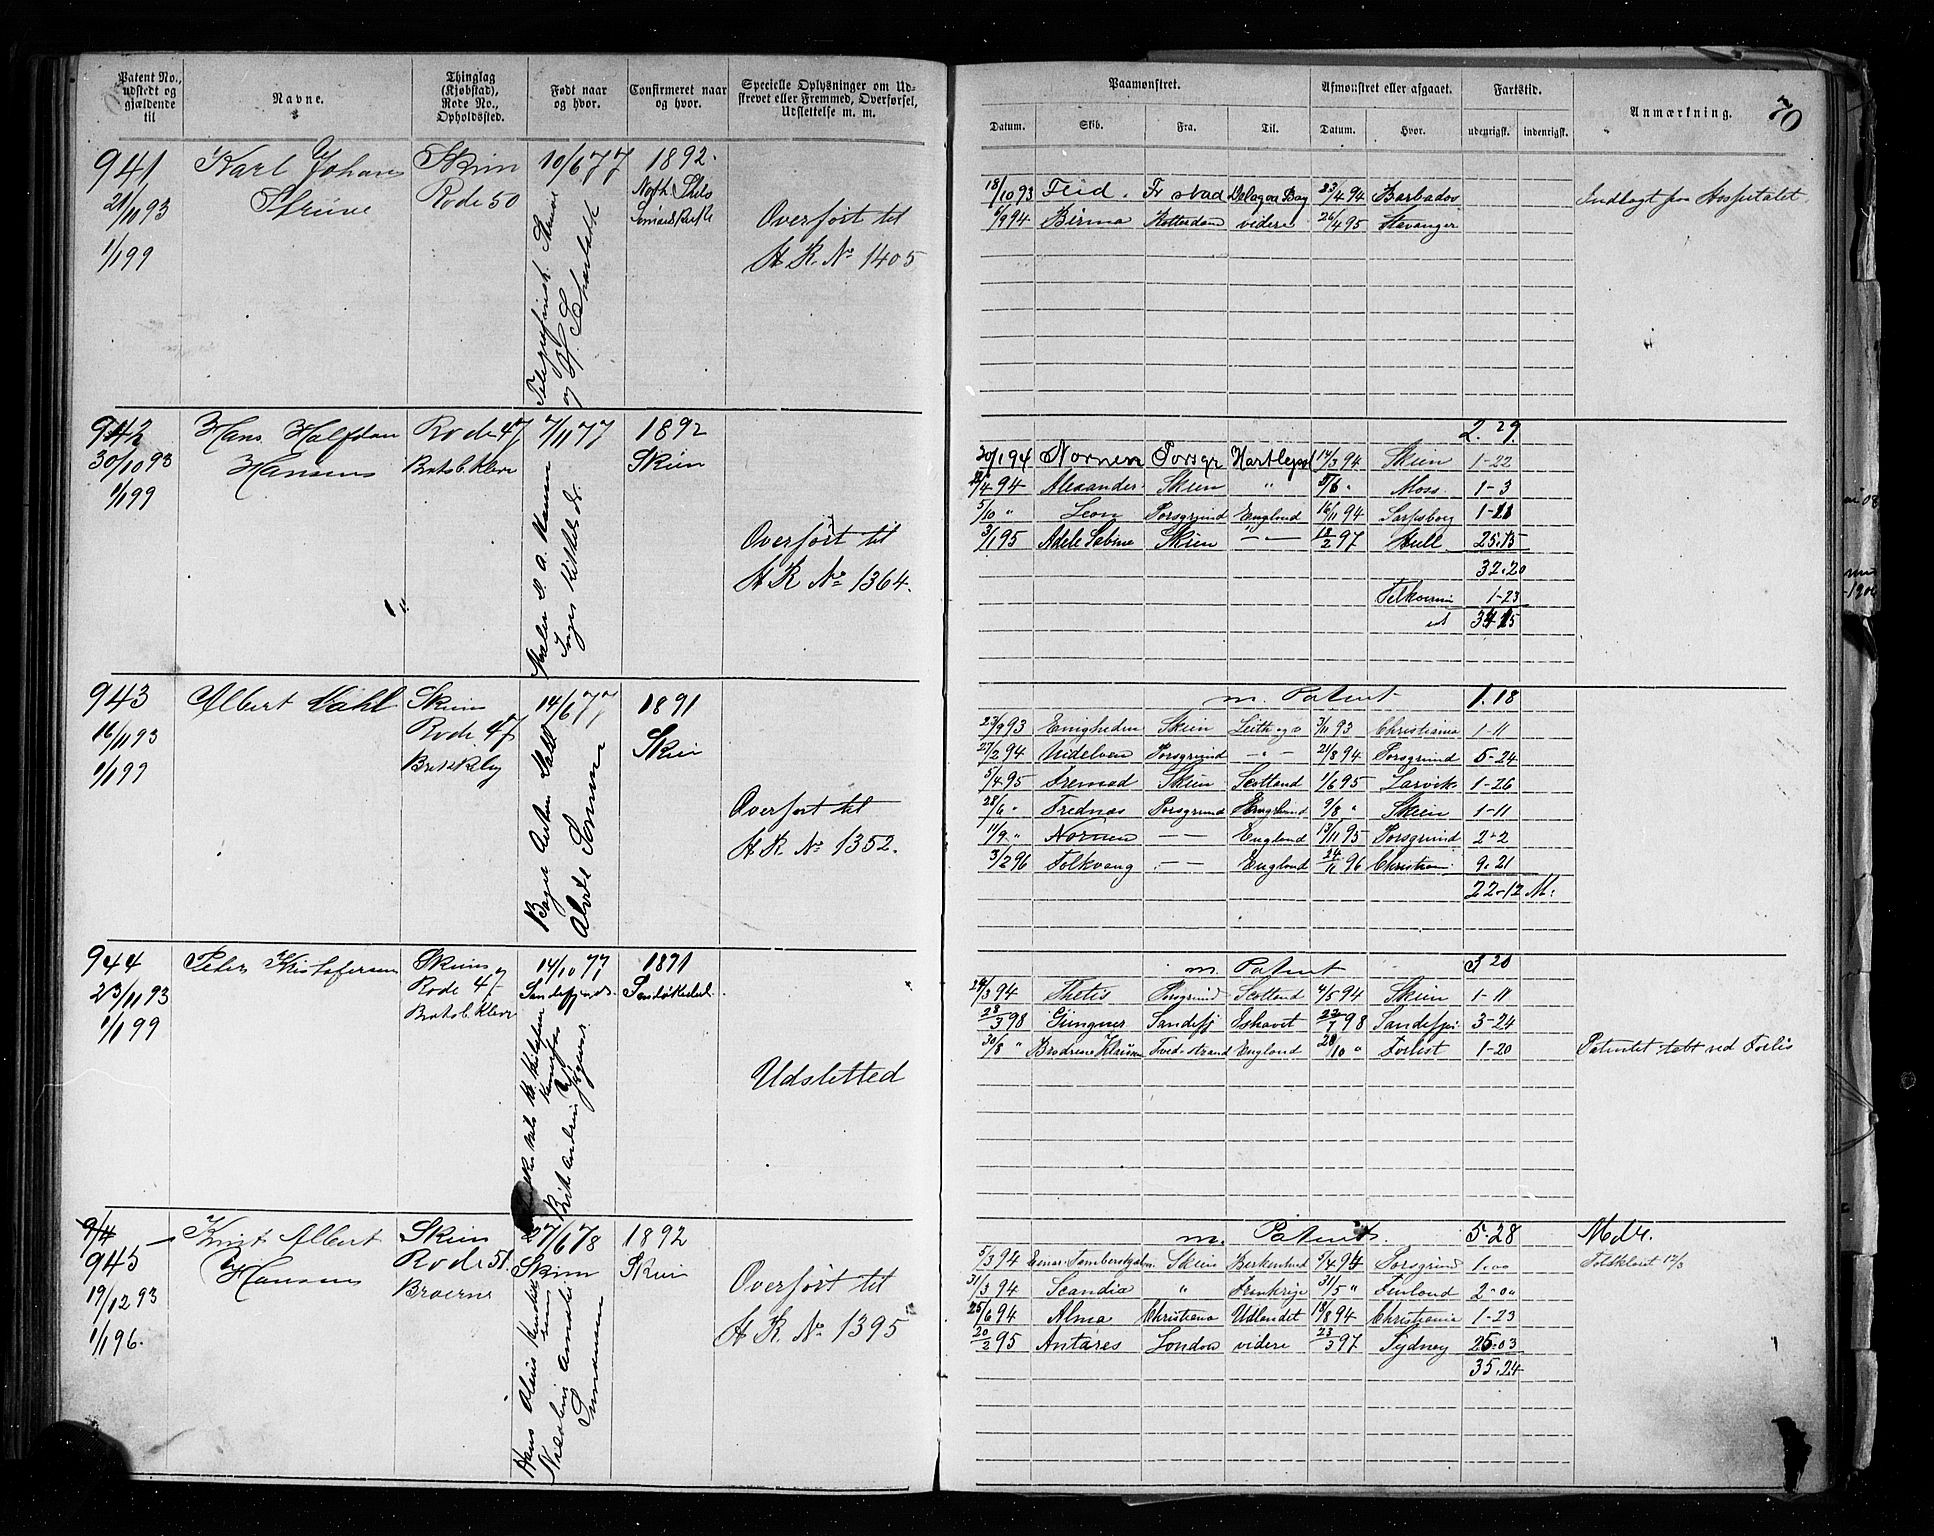 Patent No., udstedt og gjældende til
Navne.
Thinglag (Kjøbstad), Rode No., Opholdssted.
Født naar og hvor.
Confirmeret naar og hvor.
Specielle Oplysninger om Udskrevet eller Fremmed, Overførsel, Udslettelse m. m.
Paamønstret.
Datum.
Skib.
Fra.
Til.
Afmønstret eller afgaaet.
Datum.
Hvor.
Fartstid.
udenrigsk.
indenrigsk.
Anmærkning.
70
941
21/11 93
1/1 99
Karl Johan
Strüve
Skien
Rode 50
10/6 77
Telegrafinsp. Strüve
og
1892.
North Shils
Overført til
H R. No 1405
18/10 93 Feid. Fr stad Delagoa Bay 23/4 94 Barbados
Indlagt paa Hospitalet.
/9 94 Birma Rotterdam videre 26/4 95 Stavanger
942
30/10 93
1/1 99
Hans Halfdan
Hansen
Rode 47
Bratsb. Kleve
7/11 77
1892
Skien
Overført til
H R No 1364.
2. 29.
30/1 94 Nornen Porsgr Hartlepool 14/3 94 Skien 1-22
/4 94 Alexander Skien " 5/6 " Moss. 1-3
5/10 " Leon Porsgrund England 16/11 94 Sarpsborg 1-11
3/1 95 Adele Sabine Skien — " — 18/2 97 Hull 25.15
32.20
1-23
943
16/11 93
1/1 99
Albert Dahl
Skien
Rode 47
14/6 77
1891
Skien
Overført til
H R. No 1352.
m. Patent 1.18
23/9 93 Enigheden Skien Leith 3/11 93 Christiania 1-11
27/2 94 Nidelven Porsgrund — " — 21/8 94 Porsgrund 5-24
5/4 95 Fremad Skien Scotland 1/6 95 Larvik 1-26
28/6 " Frednæs Porsgrund England 9/8 " Skien 1-11
11/9 " Nornen — — England 13/11 95 Porsgrund 2-2
3/2 96 Folkvang — — England 24/11 96 Christian. 9.21
22-12 M:
944
23/11 93
1/1 99
Peter Kristofersen
Skien
Rode 47
Bratsb. Kleve
14/10 77
Sandefjord
1891
Udsletted
m. Patent 3 20
24/3 94 Thetis Porsgrund Scotland 4/5 94 Skien 1-11
28/3 98 Gungner Sandefj Ishavet 22/7 98 Sandefjor 3-24
30/8 " Brødrene Tvedestrand England 28/10 " Forlist 1-20
Patentet tabt ved Forlis
9/4
945
19/12 93
1/1 96.
Knut Albert
Hansen
Skien
Rode 51.
Broerne
27/6 78
Skien
1892
Skien
Overført til
H R. No 1395
m. Patent. 5-28
Mdr.
5/3 94 Einar Tamberskjelv Skien Birkenhead 5/4 94 Porsgrund 1.00
31/3 94 Scandia " Frankrige 31/5 " Finland 2-00
25/6 94 Alma Christiania Udlandet 18/8 94 Christiania 1-23
20/2 95 Antares London videre 23/3 97 Sydney 25.03
35.24